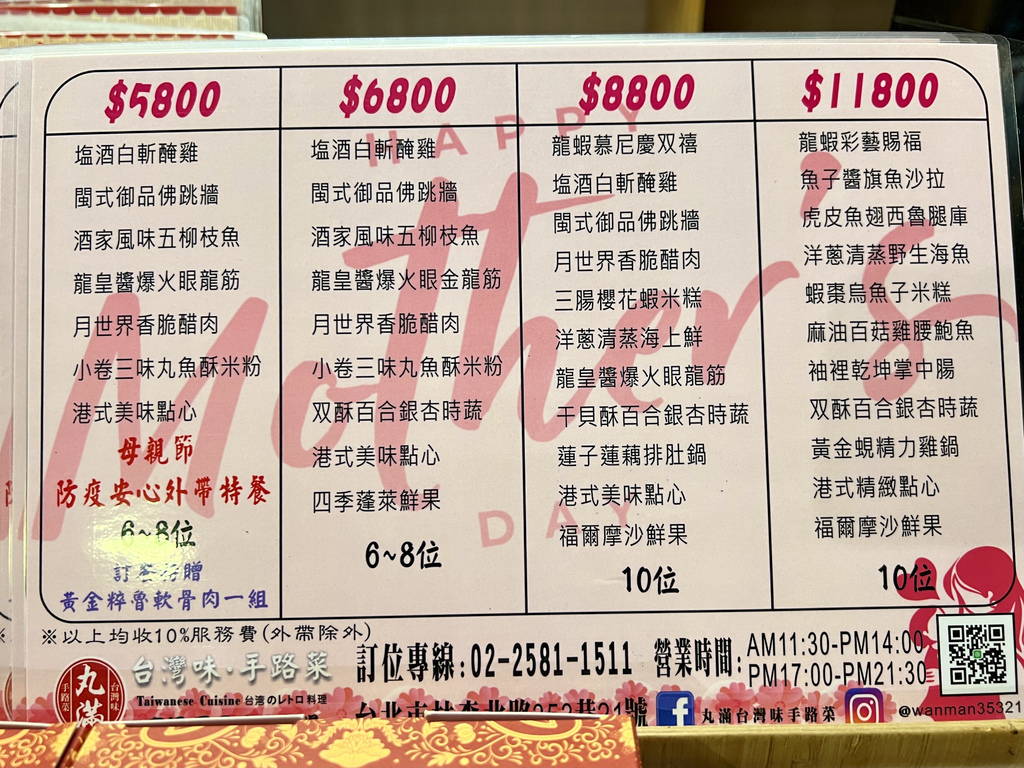 $5800
塩酒白斬醃雞
閩式御品佛跳牆
酒家風味五柳枝魚
龍皇醬爆火眼龍筋
月世界香脆醋肉
小卷三味丸魚酥米粉
港式美味點心
母親節
防疫安心外帶特餐
6~8位
黃金粹魯軟骨肉一組
$6800
塩酒白斬醃雞
閩式御品佛跳牆
酒家風味五柳枝魚
龍皇醬爆火眼金龍筋
月世界香脆醋肉
小卷三味丸魚酥米粉
双酥百合銀杏時蔬
港式美味點心
四季蓬萊鮮果
6~8位
$8800
龍蝦慕尼慶双禧
塩酒白斬醃雞
閩式御品佛跳牆
月世界香脆醋肉
三腸櫻花蝦米糕
洋蔥清蒸海上鮮
龍皇醬爆火眼龍筋
干貝酥百合銀杏時蔬
蓮子蓮藕排肚鍋
港式美味點心
福爾摩沙鮮果
10位
$11800
龍蝦彩藝賜福
魚子醬旗魚沙拉
虎皮魚翅西魯腿庫
洋蔥清蒸野生海魚
蝦棗烏魚子米糕
麻油百菇雞腰鮑魚
袖裡乾坤掌中腸
双酥百合銀杏時蔬
黃金蜆精力雞鍋
港式精緻點心
福爾摩沙鮮果
10位
HAPPY
Mother's
DAY
※以上均收10%服務費(外帶除外)
丸滿
手路菜
台灣味
台灣味·手路菜
Taiwanese Cuisine 台湾のレトロ料理
訂位專線:02-2581-1511
營業時間:AM11:30-PM14:00
PM17:00-PM21:30
丸滿台灣味手路菜
@wanman35321